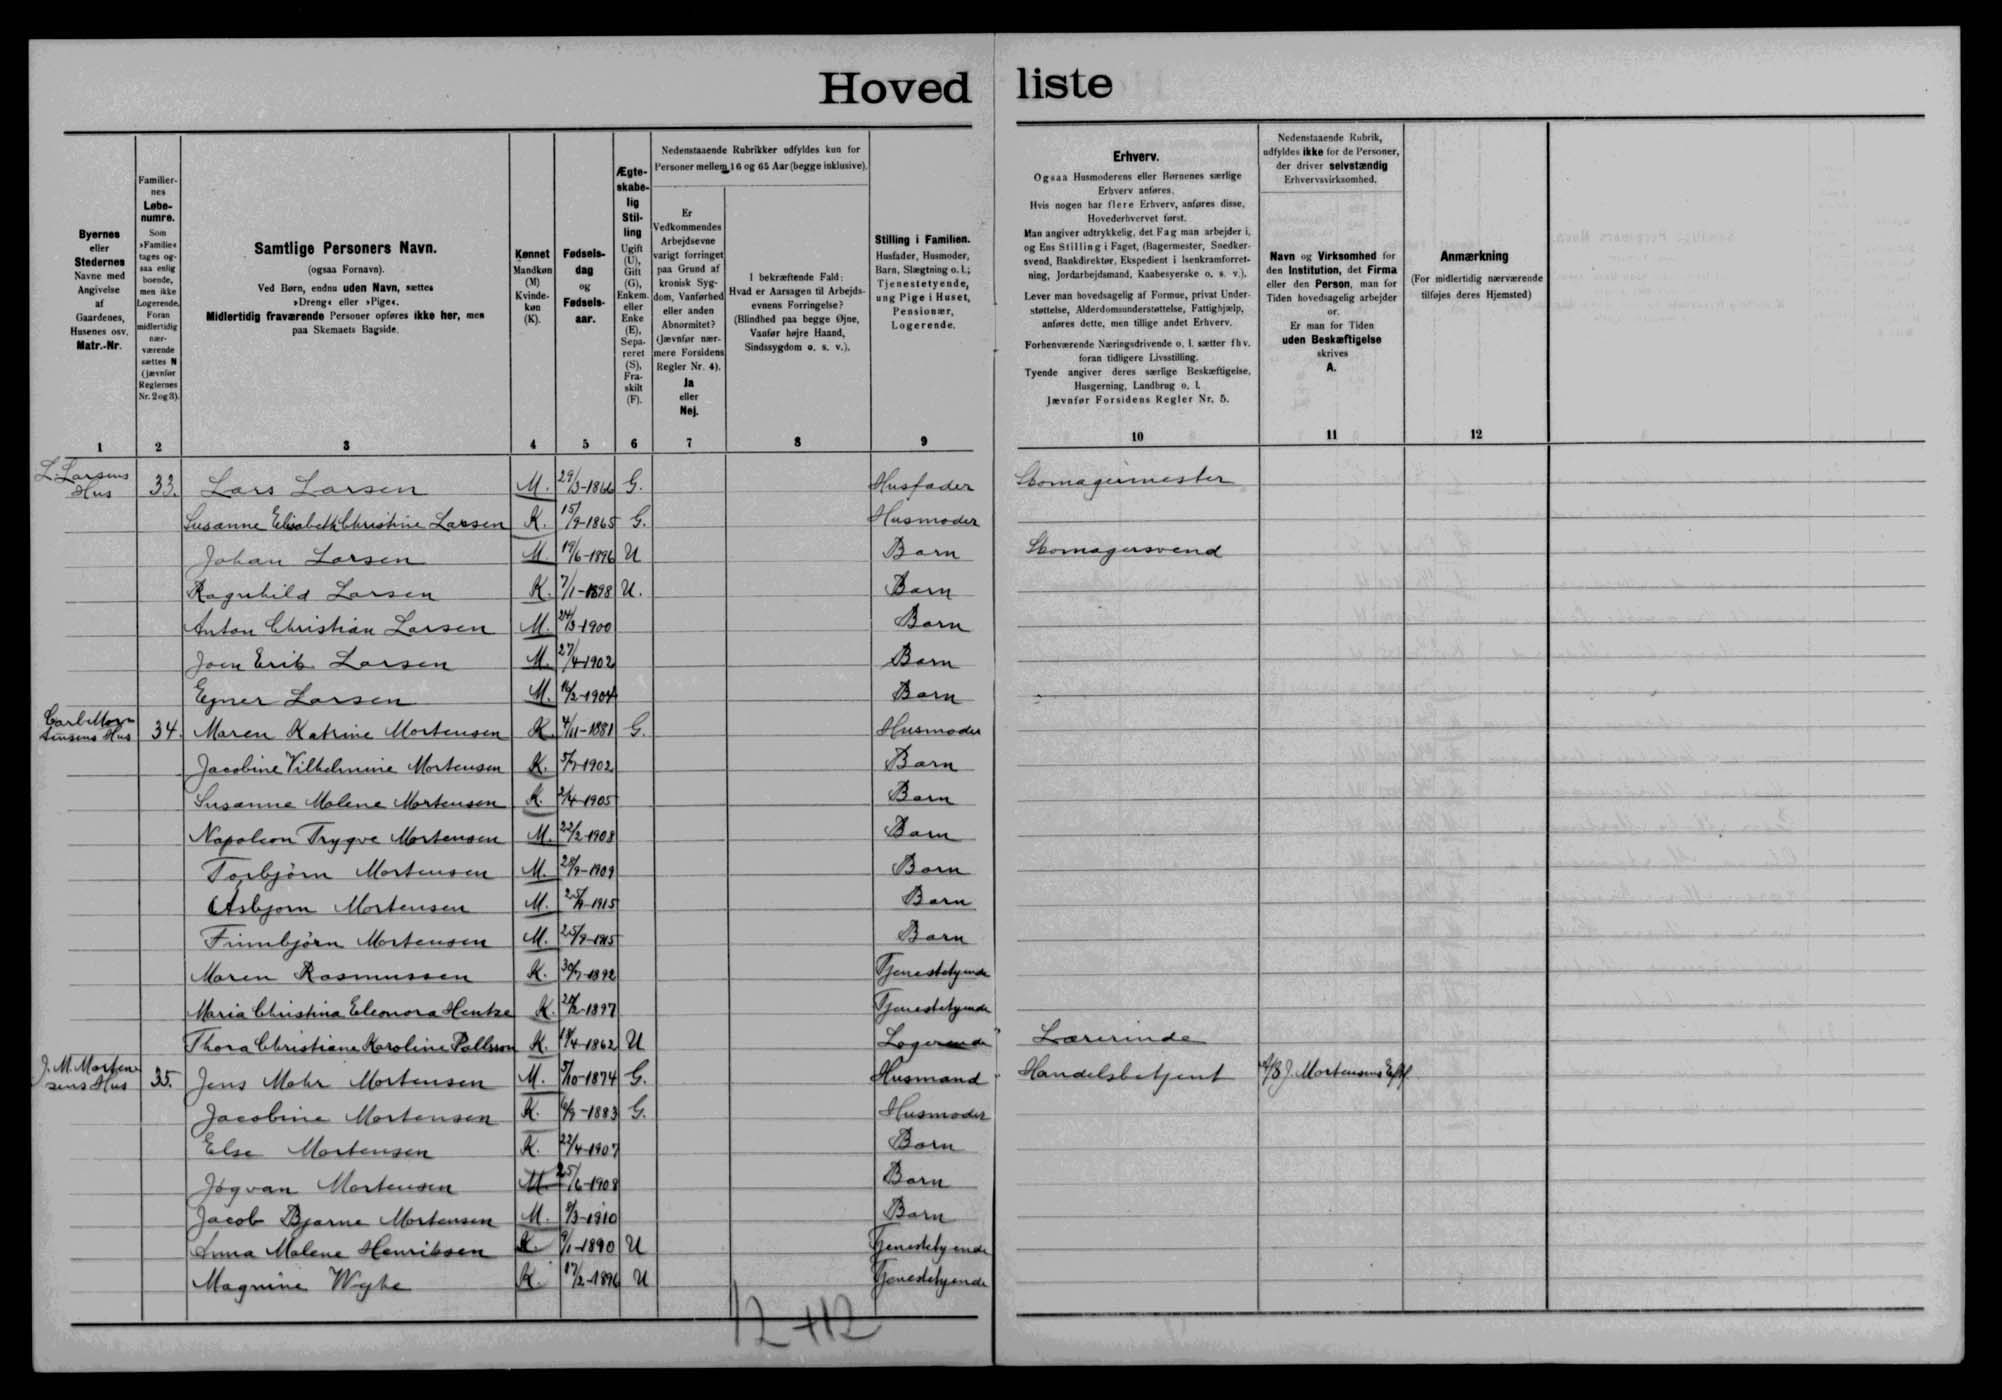 Hoved liste
Byernes
eller
Stedernes
Navne med
Angivelse
af
Gaardenes,
Husenes osv.
Matr.-Nr.
Familier-
nes
Løbe-
numre.
Som
»Familie«
tages og-
saa enlig
boende,
men ikke
Logerende.
Foran
midlertidig
nær-
værende
sættes N
(jævnfør
Reglernes
Nr. 2 og 3).
Samtlige Personers Navn.
(ogsaa Fornavn).
Ved Børn, endnu uden Navn, sættes
»Dreng« eller »Pige«.
Midlertidig fraværende Personer opføres ikke her, men
paa Skemaets Bagside.
Kønnet
Mandkøn
(M)
Kvinde-
køn
(K).
Fødsels-
dag
og
Fødsels-
aar.
Ægte-
skabe-
lig
Stil-
ling
Ugift
(U),
Gift
(G),
Enkem.
eller
Enke
(E),
Sepa-
reret
(S),
Fra-
skilt
(F).
Nedenstaaende Rubrikker udfyldes kun for
Personer mellem 16 og 65 Aar (begge inklusive).
Er
Vedkommendes
Arbejdsevne
varigt forringet
paa Grund af
kronisk Syg-
dom, Vanførhed
eller anden
Abnormitet?
(Jævnfør nær-
mere Forsidens
Regler Nr. 4).
Ja
eller
Nej.
I bekræftende Fald:
Hvad er Aarsagen til Arbejds-
evnens Forringelse?
(Blindhed paa begge Øjne,
Vanfør højre Haand,
Sindssygdom o. s. v.).
Stilling i Familien.
Husfader, Husmoder,
Barn, Slægtning o. l.;
Tjenestetyende,
ung Pige i Huset,
Pensionær,
Logerende.
Erhverv.
Ogsaa Husmoderens eller Børnenes særlige
Erhverv anføres.
Hvis nogen har flere Erhverv, anføres disse,
Hovederhvervet først.
Man angiver udtrykkelig, det Fag man arbejder i,
og Ens Stilling i Faget, (Bagermester, Snedker-
svend, Bankdirektør, Ekspedient i Isenkramforret-
ning, Jordarbejdsmand, Kaabesyerske o. s. v.).
Lever man hovedsagelig af Formue, privat Under-
støttelse, Alderdomsunderstøttelse, Fattighjælp,
anføres dette, men tillige andet Erhverv.
Forhenværende Næringsdrivende o. l. sætter fhv.
foran tidligere Livsstilling.
Tyende angiver deres særlige Beskæftigelse,
Husgerning, Landbrug o. l.
Jævnfør Forsidens Regler Nr. 5.
Nedenstaaende Rubrik,
udfyldes ikke for de Personer,
der driver selvstændig
Erhvervsvirksomhed.
Navn og Virksomhed for
den Institution, det Firma
eller den Person, man for
Tiden hovedsagelig arbejder
or.
Er man for Tiden
uden Beskæftigelse
skrives
A.
Anmærkning
(For midlertidig nærværende
tilføjes deres Hjemsted)
1 2 3 4 5 6 7 8 9 10 11 12
L. Larsens
Hus 33. Lars Larsen M. 29/3-1866 G. Husfader Skomagermester
Susanne Elisabeth Christine Larsen K. 15/9-1865 G. Husmoder
Johan Larsen M. 19/6-1896 U Barn Skomagersvend
Ragnhild Larsen K. 7/1-1898 U. Barn
Anton Christian Larsen M. 24/3-1900 Barn
Joen Erik Larsen M. 27/4-1902 Barn
Ejner Larsen M. 16/2-1904 Barn
Carl Mor-
tensens Hus 34. Maren Katrine Mortensen K. 4/11-1881 G. Husmoder
Jacobine Vilhelmine Mortensen K. 5/7-1902 Barn
Susanne Malene Mortensen K. 2/4-1905 Barn
Napoleon Trygve Mortensen M. 22/2-1908 Barn
Torbjørn Mortensen M. 28/9-1909 Barn
Asbjørn Mortensen M. 25/9-1915 Barn
Finnbjørn Mortensen M. 25/9-1915 Barn
Maren Rasmussen K. 30/7-1892 Tjenestetyende
Maria Christina Eleonora Hentze K. 1897 Tjenestetyende
Thora Christiane Karoline Pallsson K. 18/4-1862 U Logerende Lærerinde
J. M. Morten-
sens Hus 35. Jens Mohr Mortensen M. 5/10-1874 G. Husmand Handelsbetjent J. Mortensens Eftf.
Jacobine Mortensen K. 6/9-1883 G. Husmoder
Else Mortensen K. 22/4-1907 Barn
Jógvan Mortensen M 25/6-1908 Barn
Jacob Bjarne Mortensen M. 9/3-1910 Barn
Anna Malene Henriksen K. 9/1-1890 U Tjenestetyende
Magnine Wyke K. 17/2-1896 U Tjenestetyende
12+12